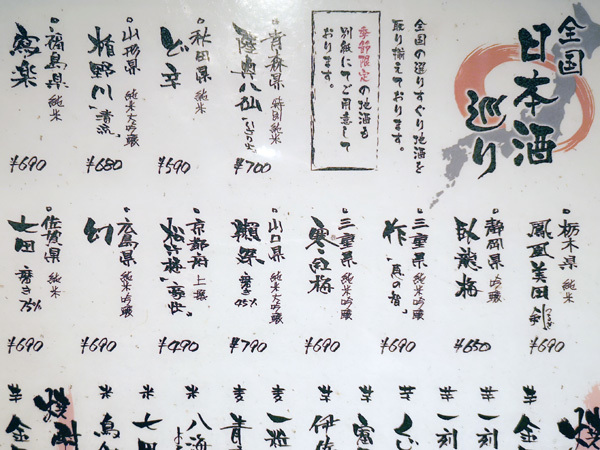 全国
日本酒
巡り
全国の選りすぐり地酒を
取り揃えております。
季節限定の地酒も
別紙にてご用意して
おります。
青森県 特別純米
陸奥八仙「いさり火」
¥700
秋田県 純米
ど辛
¥590
山形県 純米大吟醸
楯野川「清流」
¥680
福島県 純米
寫楽
¥690
栃木県 純米
鳳凰美田 剱
¥690
静岡県 吟醸
臥龍梅
¥650
三重県 純米吟醸
作「恵の智」
¥690
三重県 純米吟醸
寒紅梅
¥690
山口県 純米大吟醸
獺祭 磨き45%
¥790
京都府 上撰
松竹梅「豪快」
¥490
広島県 純米吟醸
幻
¥690
佐賀県 純米
七田 磨き75%
¥690
焼
芋 金
芋 一刻
芋 一刻
芋 く
芋
芋 伊佐
麦 一粒
麦 青
米 八海
米 七
米 鳥
焼酎
芋 金